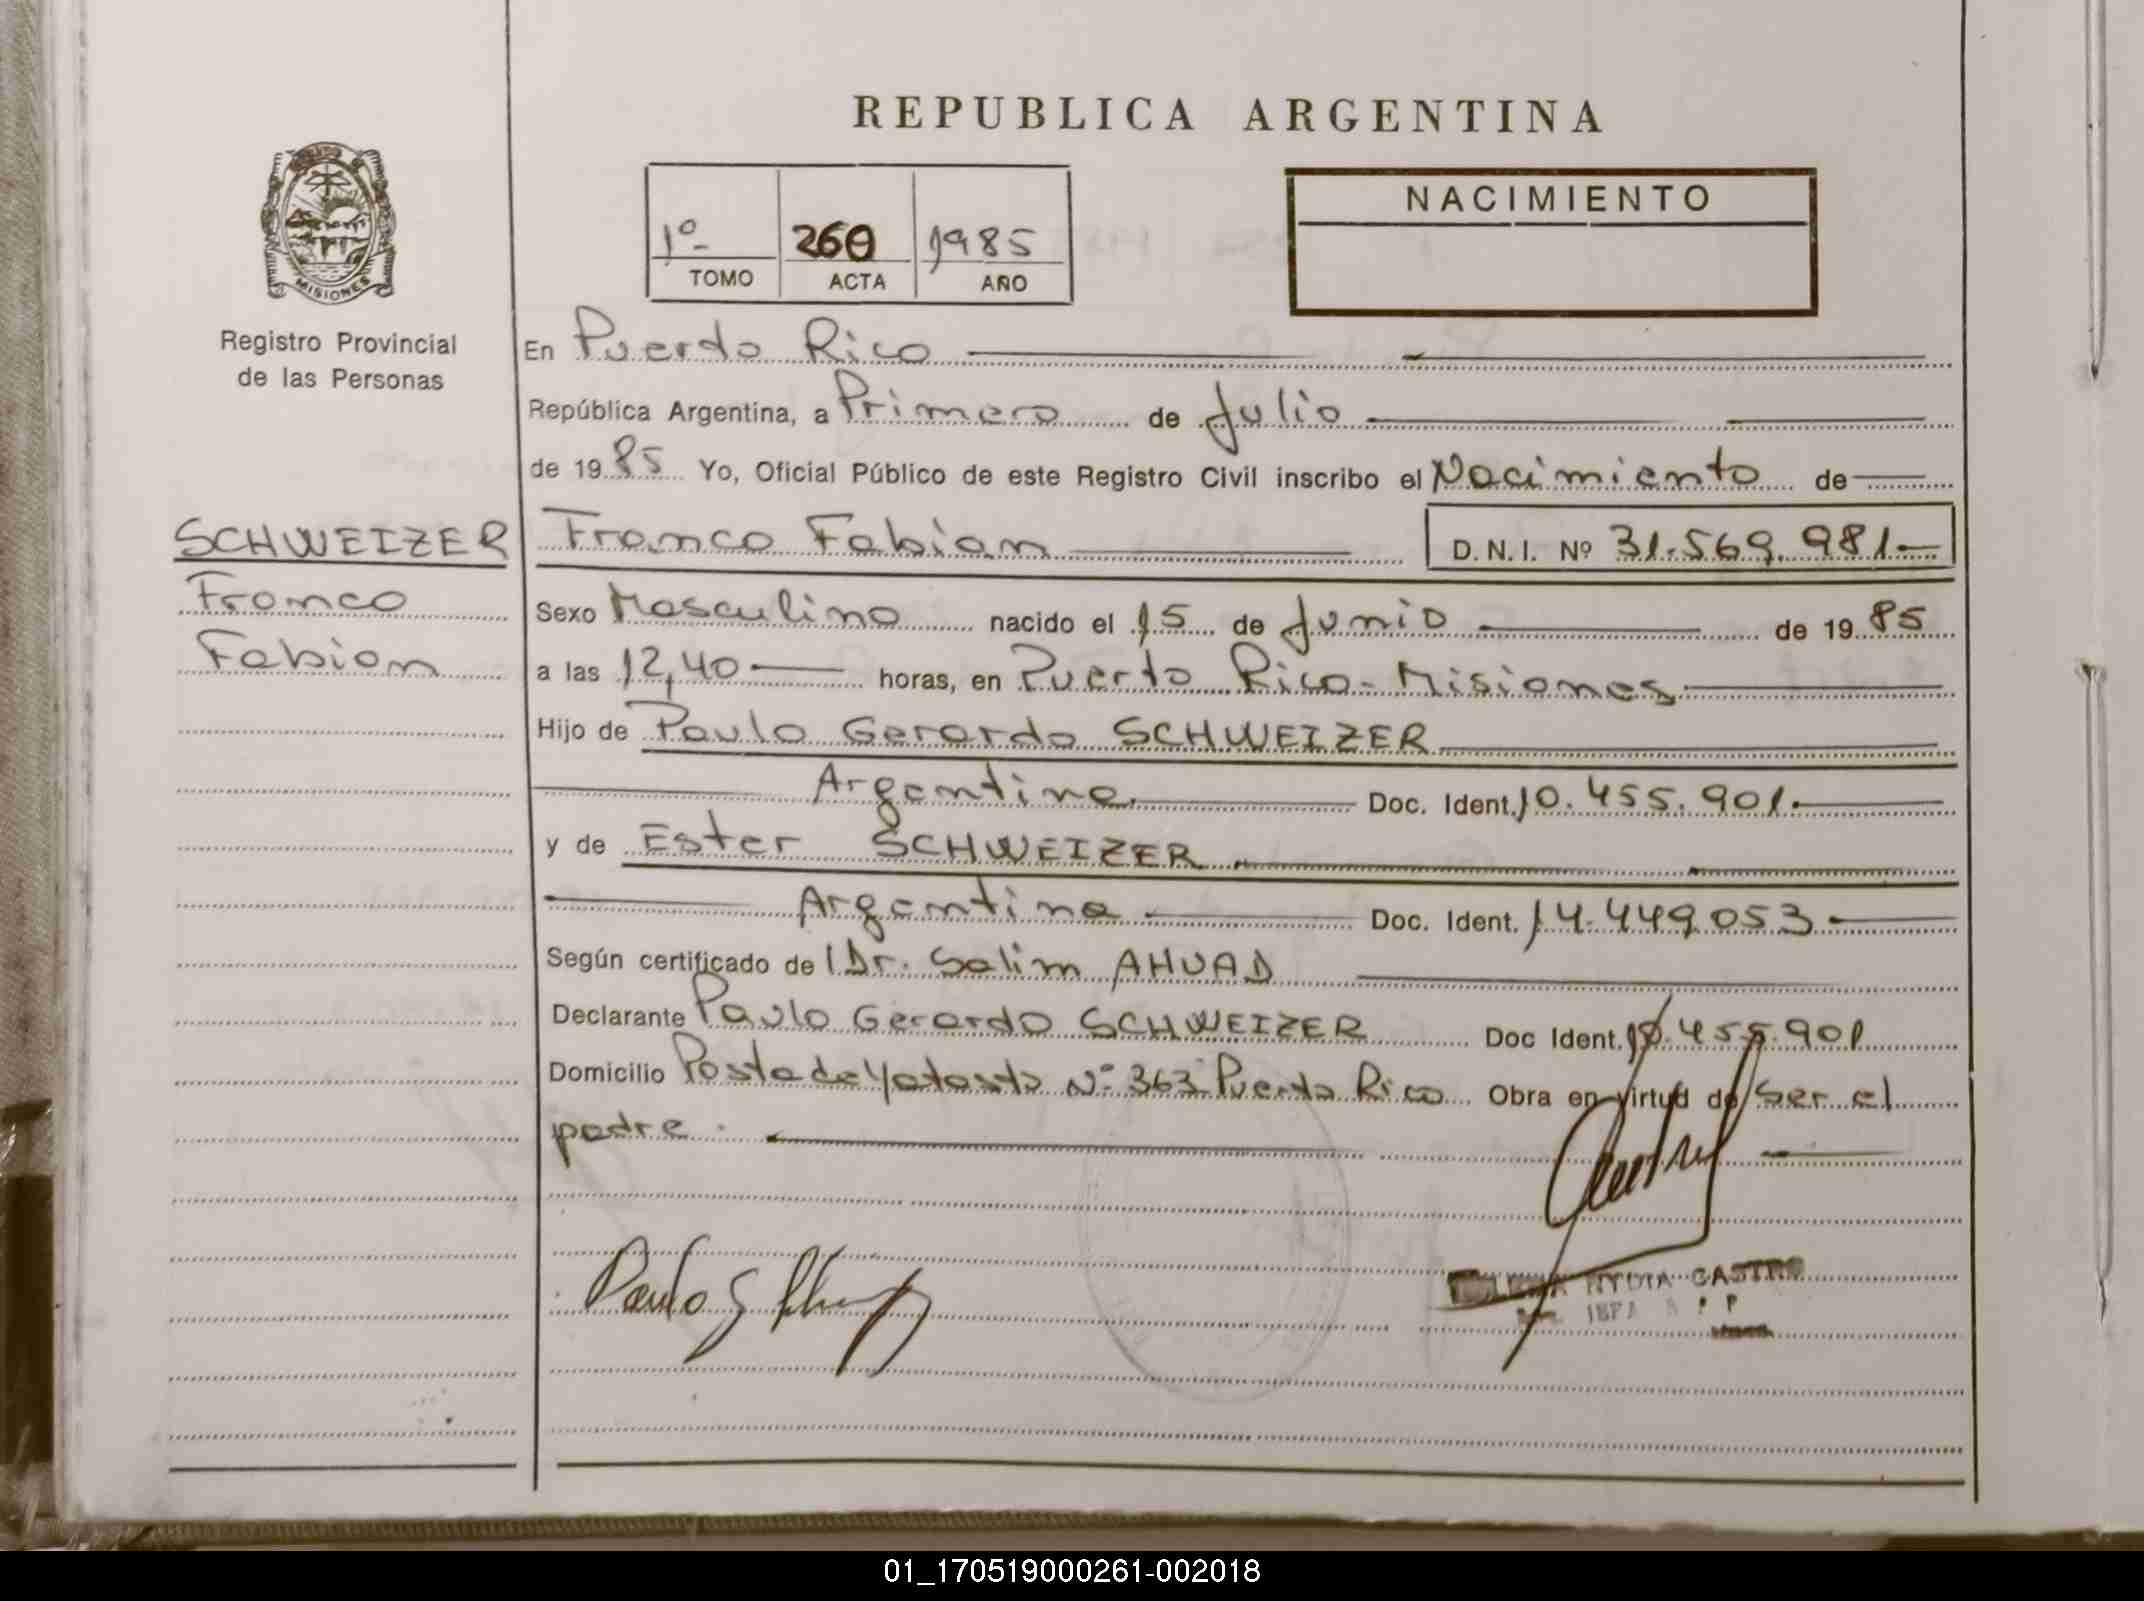 REPUBLICA ARGENTINA
MISIONES
Registro Provincial
de las Personas
1º 260 1985
TOMO ACTA AÑO
NACIMIENTO
En Puerto Rico
República Argentina, a Primero de Julio
de 1985 Yo, Oficial Público de este Registro Civil inscribo el Nacimiento de
SCHWEIZER
Franco
Fabian
Franco Fabian D.N.I. Nº 31.569.981.-
Sexo Masculino nacido el 15 de Junio de 1985
a las 12,40 horas, en Puerto Rico-Misiones
Hijo de Paulo Gerardo SCHWEIZER
Argentino Doc. Ident. 10.455.901.
y de Ester SCHWEIZER
Argentina Doc. Ident. 14.449.053
Según certificado de l Dr. Salim AHUAD
Declarante Paulo Gerardo SCHWEIZER Doc Ident. 10.455.901
Domicilio Posta de Yatasto Nº 363 Puerto Rico Obra en virtud de ser el
padre.
Paulo G
NYDIA CASTRO
01_170519000261-002018